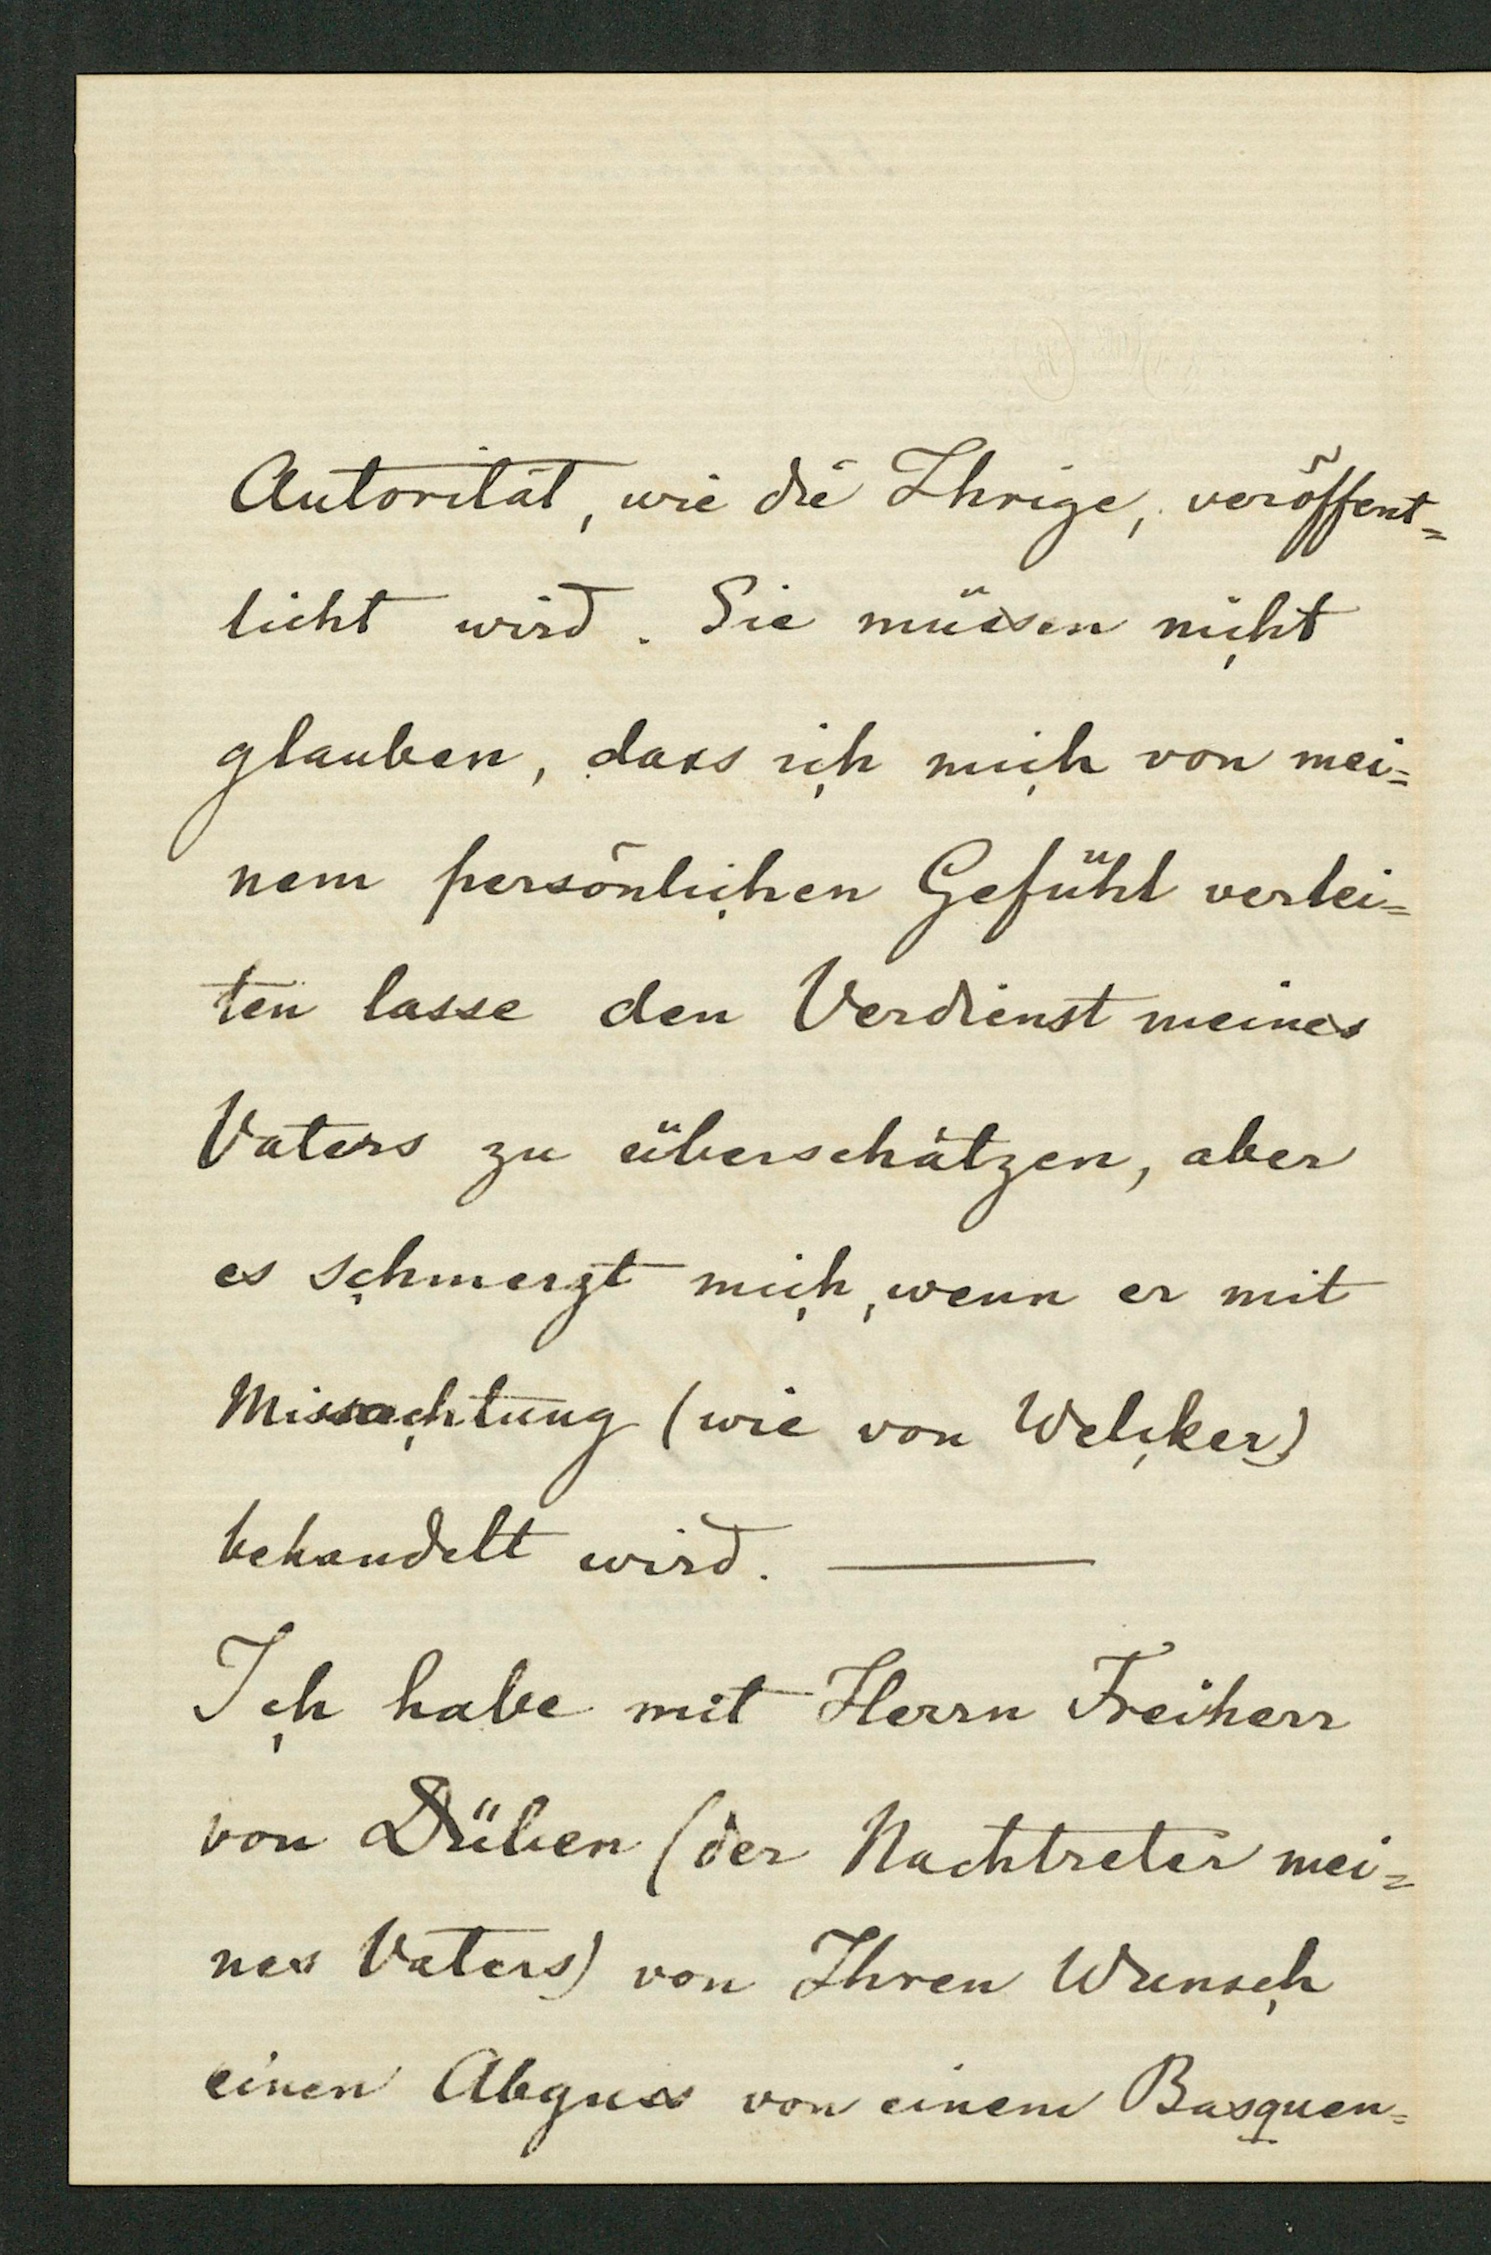 Autorität, wie die Ihrige, veröffent=
licht wird. Sie müssen nicht
glauben, dass ich mich von mei=
nem persönlichen Gefühl verlei=
ten lasse den Verdienst meines
Vaters zu überschätzen, aber
es schmerzt mich, wenn er mit
Missachtung (wie von Welcker)
behandelt wird. —
Ich habe mit Herrn Freiherr
von Düben (der Nachtreter mei=
nes Vaters) von Ihren Wunsch
einen Abguss von einem Basquen=